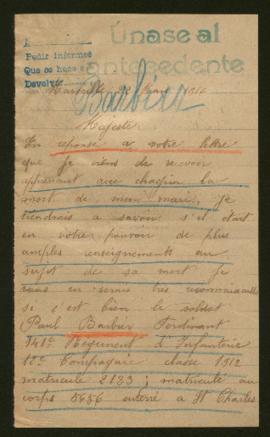 Únase al
antecedente
Pedir informes
Que se hace
Devolver
Marseille 1916
Barbier
Majesté
En reponse a votre lettre
que je viens de recevoir
apprenant avec chagrin la
mort de mon mari, je
tiendrais a savoir s'il était
en votre pouvoir de plus
amples renseignements au
sujet de sa mort je
vous en serais tres reconnaissante
si s'est bien le soldat
Paul Barbier Ferdinant
141e Regiment d'Infanterie
12e Compagnie classe 1912
matricule 2133; matricule au
corps 5656 enterré a St Charles